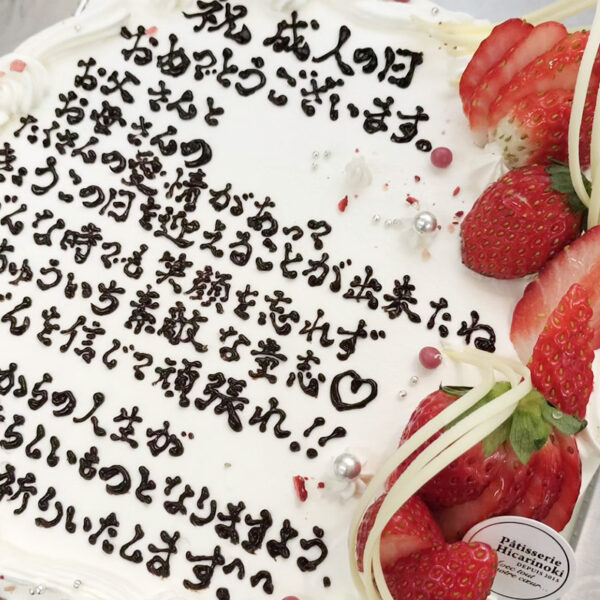 祝 成人の日
おめでとうございます。
お父さんと
お母さんの
たくさんの愛情があって
きょうこの日を迎えることが出来たね
んな時でも笑顔を忘れず
ゅういち素敵な童志♡
んを信じて頑張れ!!
からの人生が
らしいものとなりますよう
祈りいたします
Pâtisserie
Hicarinoki
DEPUIS 2015